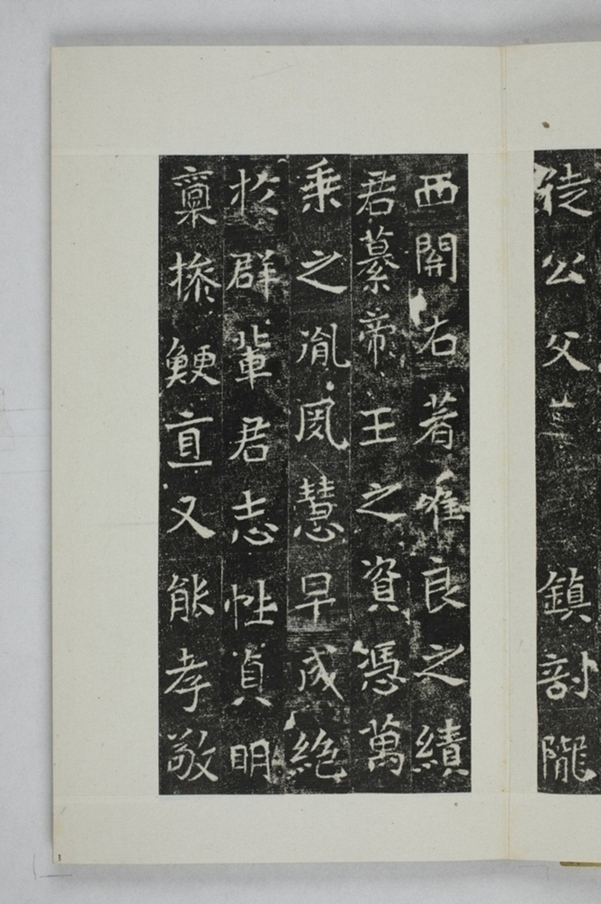 徒公父鎮剖隴
西開右著唯良之績
君纂帝王之資憑萬
乘之胤夙慧早成絕
於群輩君志性貞明
稟操鯁直又能孝敬
3